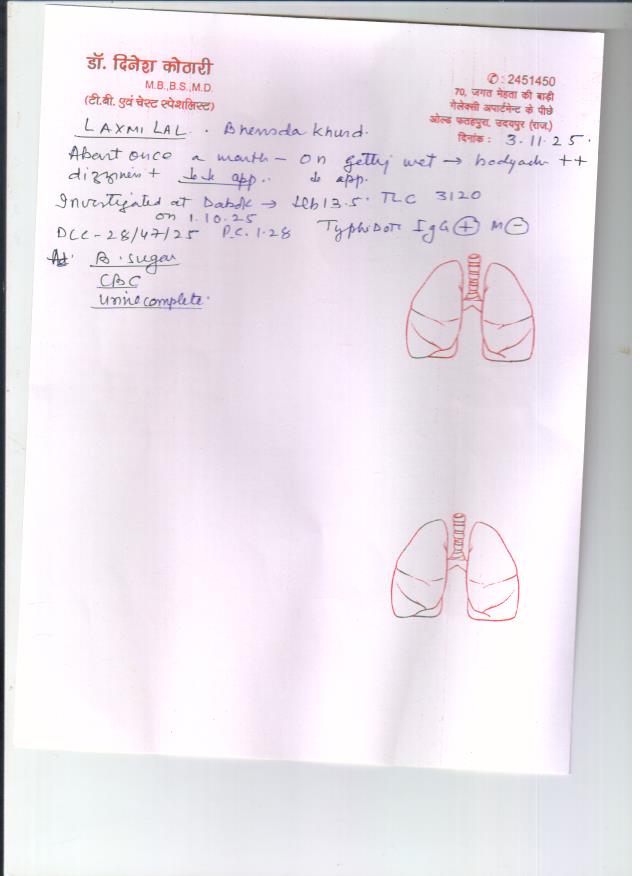 डॉ. दिनेश कोठारी
M.B.,B.S.,M.D.
(टी.बी. एवं चेस्ट स्पेशलिस्ट)
✆ : 2451450
70, जगत मेहता की बाड़ी
गेलेक्सी अपार्टमेन्ट के पीछे
ओल्ड फतहपुरा, उदयपुर (राज.)
दिनांक : 3.11.25.
LAXMI LAL. Bhensda Khurd.
About once a month - on getting wet → bodyache ++
dizziness + ↓ app.
Investigated at Dabok → Hb 13.5. TLC 3120
on 1.10.25
DLC - 28/47/25 P.C. 1.28 Typhidot IgG (+) M (-)
B. sugar
CBC
Urine complete.